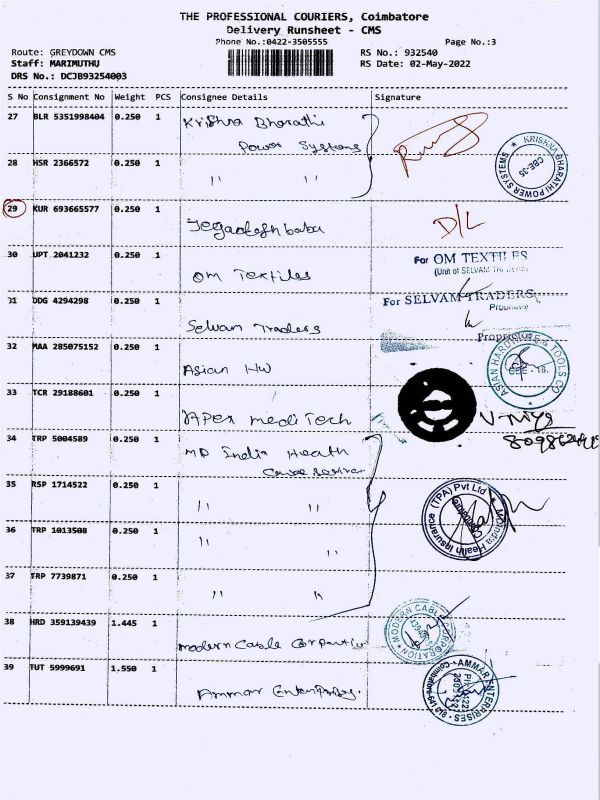 THE PROFESSIONAL COURIERS, Coimbatore
Delivery Runsheet - CMS
Phone No.:0422-3505555
Page No.:3
Route: GREYDOWN CMS
RS No.: 932540
Staff: MARIMUTHU
RS Date: 02-May-2022
DRS No.: DCJB93254003
S No Consignment No Weight PCS Consignee Details Signature
27 BLR 5351998404 0.250 1 Krishna Bharathi
Power Systems
KRISHNA BHARATHI POWER SYSTEMS CBE-35
28 HSR 2366572 0.250 1 '' ''
29 KUR 693665577 0.250 1
D/L
30 UPT 2041232 0.250 1 OM Textiles
For OM TEXTILES
(Unit of SELVAM TRADERS)
31 DDG 4294298 0.250 1 Selvan Traders
For SELVAM TRADERS,
Proprietor
Proprietor
32 MAA 285075152 0.250 1 Asian HW
ASIAN HARDWARES & TOOLS CO CBE - 18.
33 TCR 29188601 0.250 1 Apex medi Tech
34 TRP 5004589 0.250 1 MD India Health
35 RSP 1714522 0.250 1 '' ''
MDIndia Health Insurance (TPA) Pvt Ltd Coimbatore
36 TRP 1013508 0.250 1 '' ''
37 TRP 7739871 0.250 1 '' ''
38 HRD 359139439 1.445 1 modern Cable Corporation
MODERN CABLE CORPORATION
39 TUT 5999691 1.550 1 Ammar Enterprises.
AMMAR ENTERPRISES Coimbatore-641 018